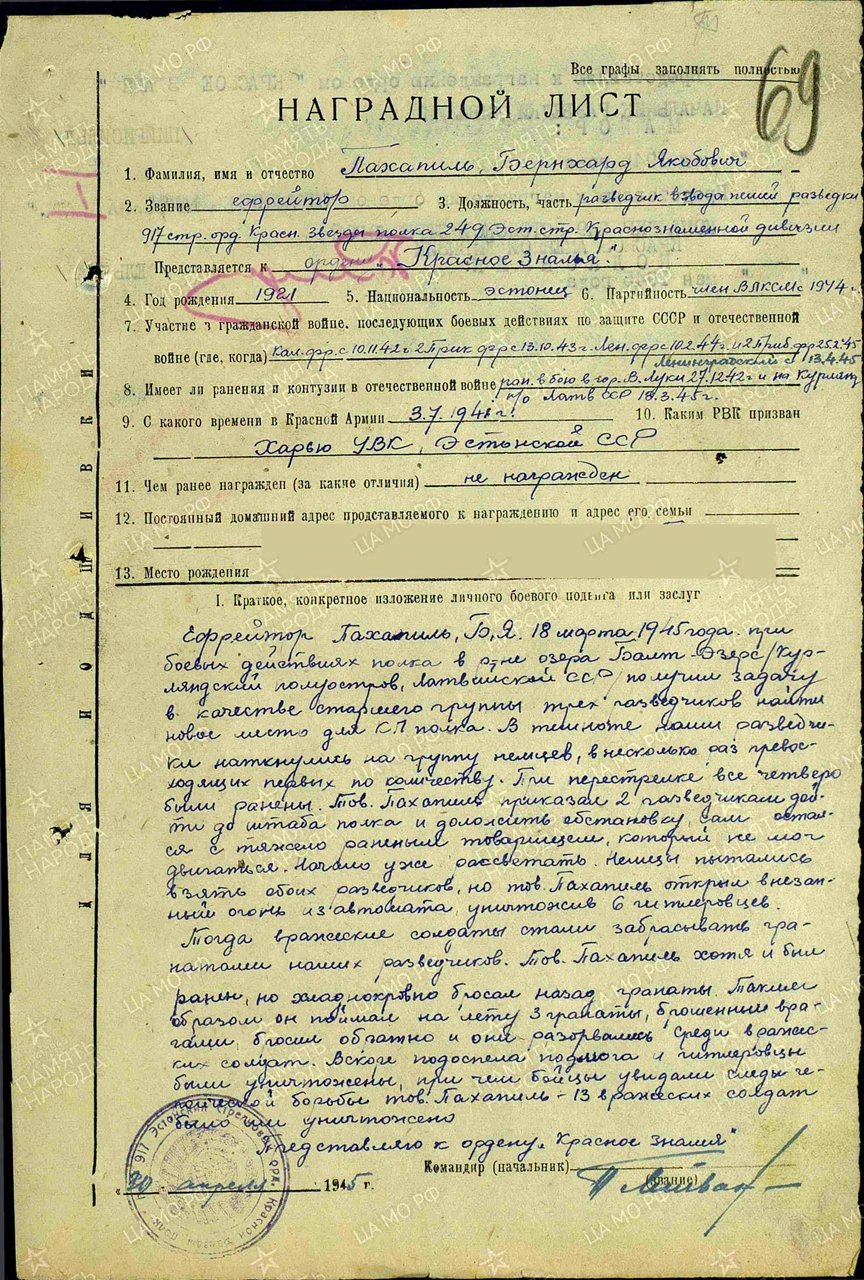 Все графы заполнять полностью
69
НАГРАДНОЙ ЛИСТ
1. Фамилия, имя и отчество Пахапиль, Бернхард Якобович
2. Звание ефрейтор 3. Должность, часть разведчик взвода пешей разведки
917 стр. орд. Красн. Звезды полка 249 Эст. стр. Краснознаменной дивизии
Представляется к ордену "Красное Знамя".
4. Год рождения 1921 5. Национальность эстонец 6. Партийность член ВЛКСМ с 1944 г.
7. Участие в гражданской войне, последующих боевых действиях по защите СССР и отечественной
войне (где, когда) Кал. фр. с 10.11.42 г. 2 Приб фр с 13.10.43 г. Лен. фр с 10.2.44 г. и 2 Приб. фр 25.2.45
Ленинградский с 13.4.45
8. Имеет ли ранения и контузии в отечественной войне ран. в бою в гор. В. Луки 27.12.42 г. и на Курлянд.
п/о Латв ССР 18.3.45 г.
9. С какого времени в Красной Армии 3.7.1941 г. 10. Каким РВК призван
Харью УВК, Эстонской ССР
11. Чем ранее награжден (за какие отличия) не награжден
12. Постоянный домашний адрес продставляемого к награждению и адрес его семьи
13. Место рождения
I. Краткое, конкретное изложение личного боевого подвига или заслуг
Ефрейтор Пахапиль, Б, Я. 18 марта 1945 года при
боевых действиях полка в р-не озера Балт-Эзерс /Кур-
ляндский полуостров, Латвийской ССР/ получил задачу
в качестве старшего группы трех разведчиков найти
новое место для КП полка. В темноте наши разведчи-
ки наткнулись на группу немцев, в несколько раз превос-
ходящих первых по количеству. При перестрелке все четверо
были ранены. Тов. Пахапиль приказал 2 разведчикам дой-
ти до штаба полка и доложить обстановку, сам остал-
ся с тяжело раненым товарищем, который не мог
двигаться. Начало уже рассветать. Немцы пытались
взять обоих разведчиков, но тов. Пахапиль открыл внезап-
ный огонь из автомата, уничтожив 6 гитлеровцев.
Тогда вражеские солдаты стали забрасывать гра-
натами наших разведчиков. Тов. Пахапиль хотя и был
ранен, но хладнокровно бросал назад гранаты. Таким
образом он поймал на лету 3 гранаты, брошенные вра-
гами, бросил обратно и они разорвались среди вражес-
ких солдат. Вскоре подоспела подмога и гитлеровцы
были уничтожены, при чем бойцы увидали следы ге-
роической борьбы тов. Пахапиль - 13 вражеских солдат
было им уничтожено
Представляю к ордену "Красное Знамя"
Командир (начальник)
(звание)
"30" апреля 1945 г.
917 Эстонский стрелковый орд. Красной Звезды полк
ДЛЯ ПОДШИВКИ
ЦА МО РФ
ПАМЯТЬ НАРОДА